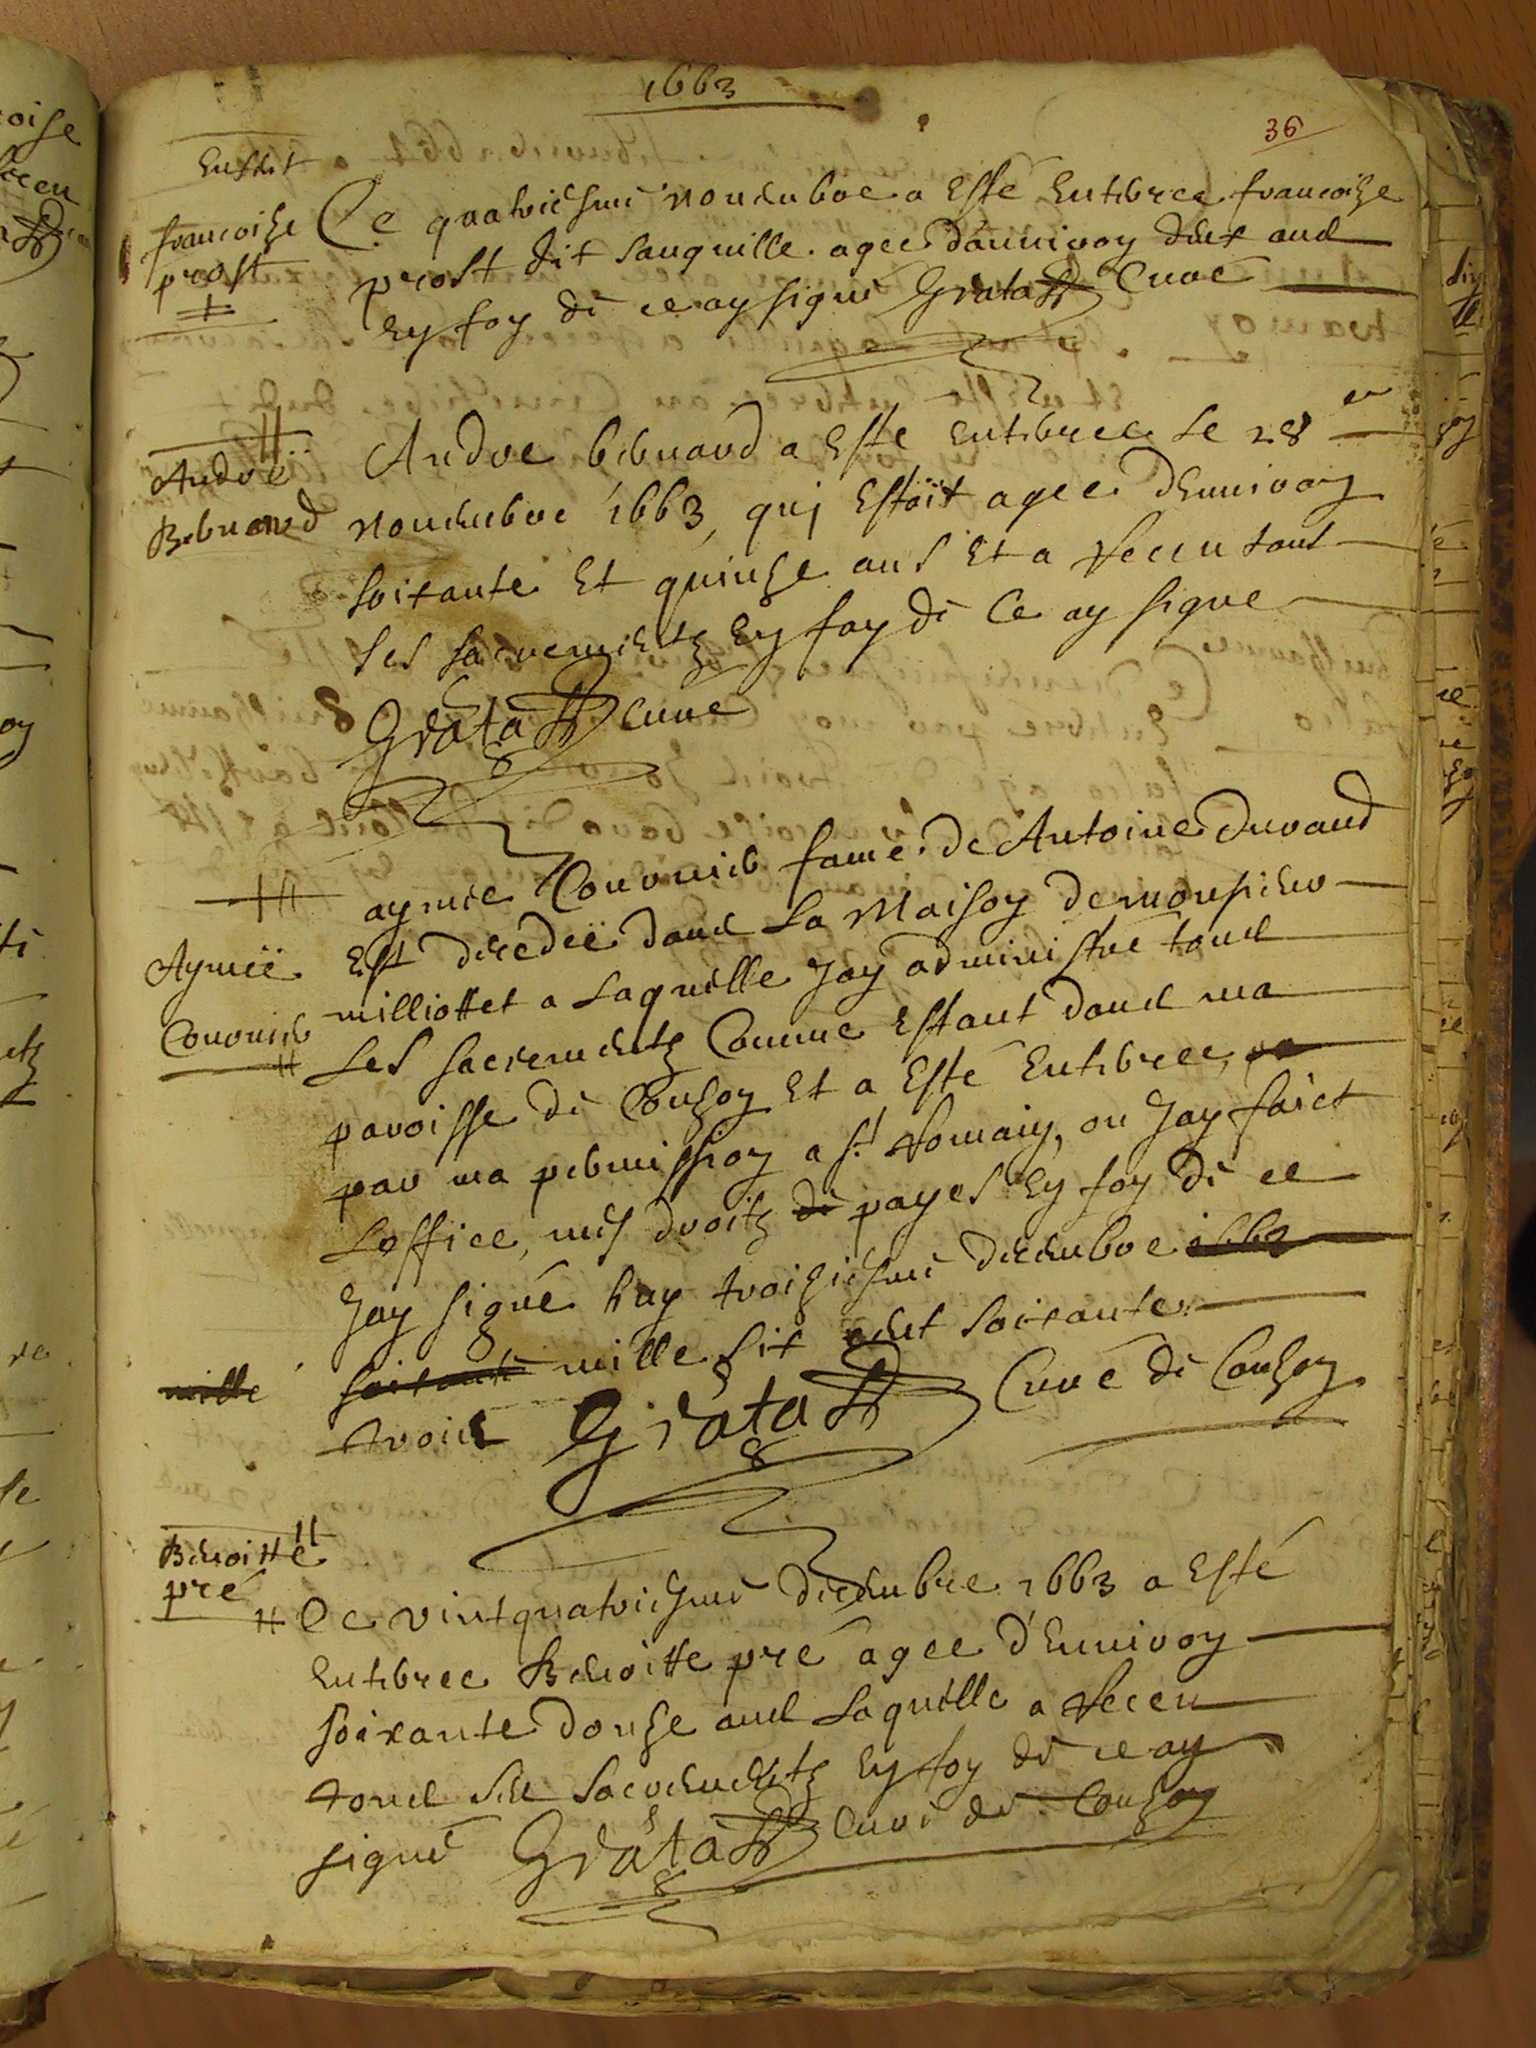 1663
36
francoise
prost
Ce quatriesme novembre a Esté Enterree francoise
prost dit lanquille agee d'anniron deux ans
En foy de ce ay signé Grata Curé
André
Bernard
Andre bernard a Este enterree le 28 en
novembre 1663, qui Estoit agee d'Enniron
soixante Et quinze ans Et a Receu tous
ses sacrementz En foy de Ce ay signe
Grata Cure
Aymeë
Couonier
aymee Couonier fame de Antoine Durand
Est decedeë dans La Maison de monsieur
milliottet a Laquelle Jay administré tous
Les sacrementz Comme Estant dans ma
paroisse de Couzon Et a Esté Enterree
par ma permission a St Romain, ou Jay faict
Loffice, mes droitz de payes En foy de ce
Jay signé huy troiziesme decembre 1663
mille
soixante mille six cent soixante
trois Grata Curé de Couzon
Benoitte
pré
Ce vintquatriesme decembre 1663 a Esté
Enterree Benoitte pré agee d'Enniron
soixante douze ans Laquelle a Receu
tous ses sacrementz En foy de ce ay
signé Grata Curé de Couzon